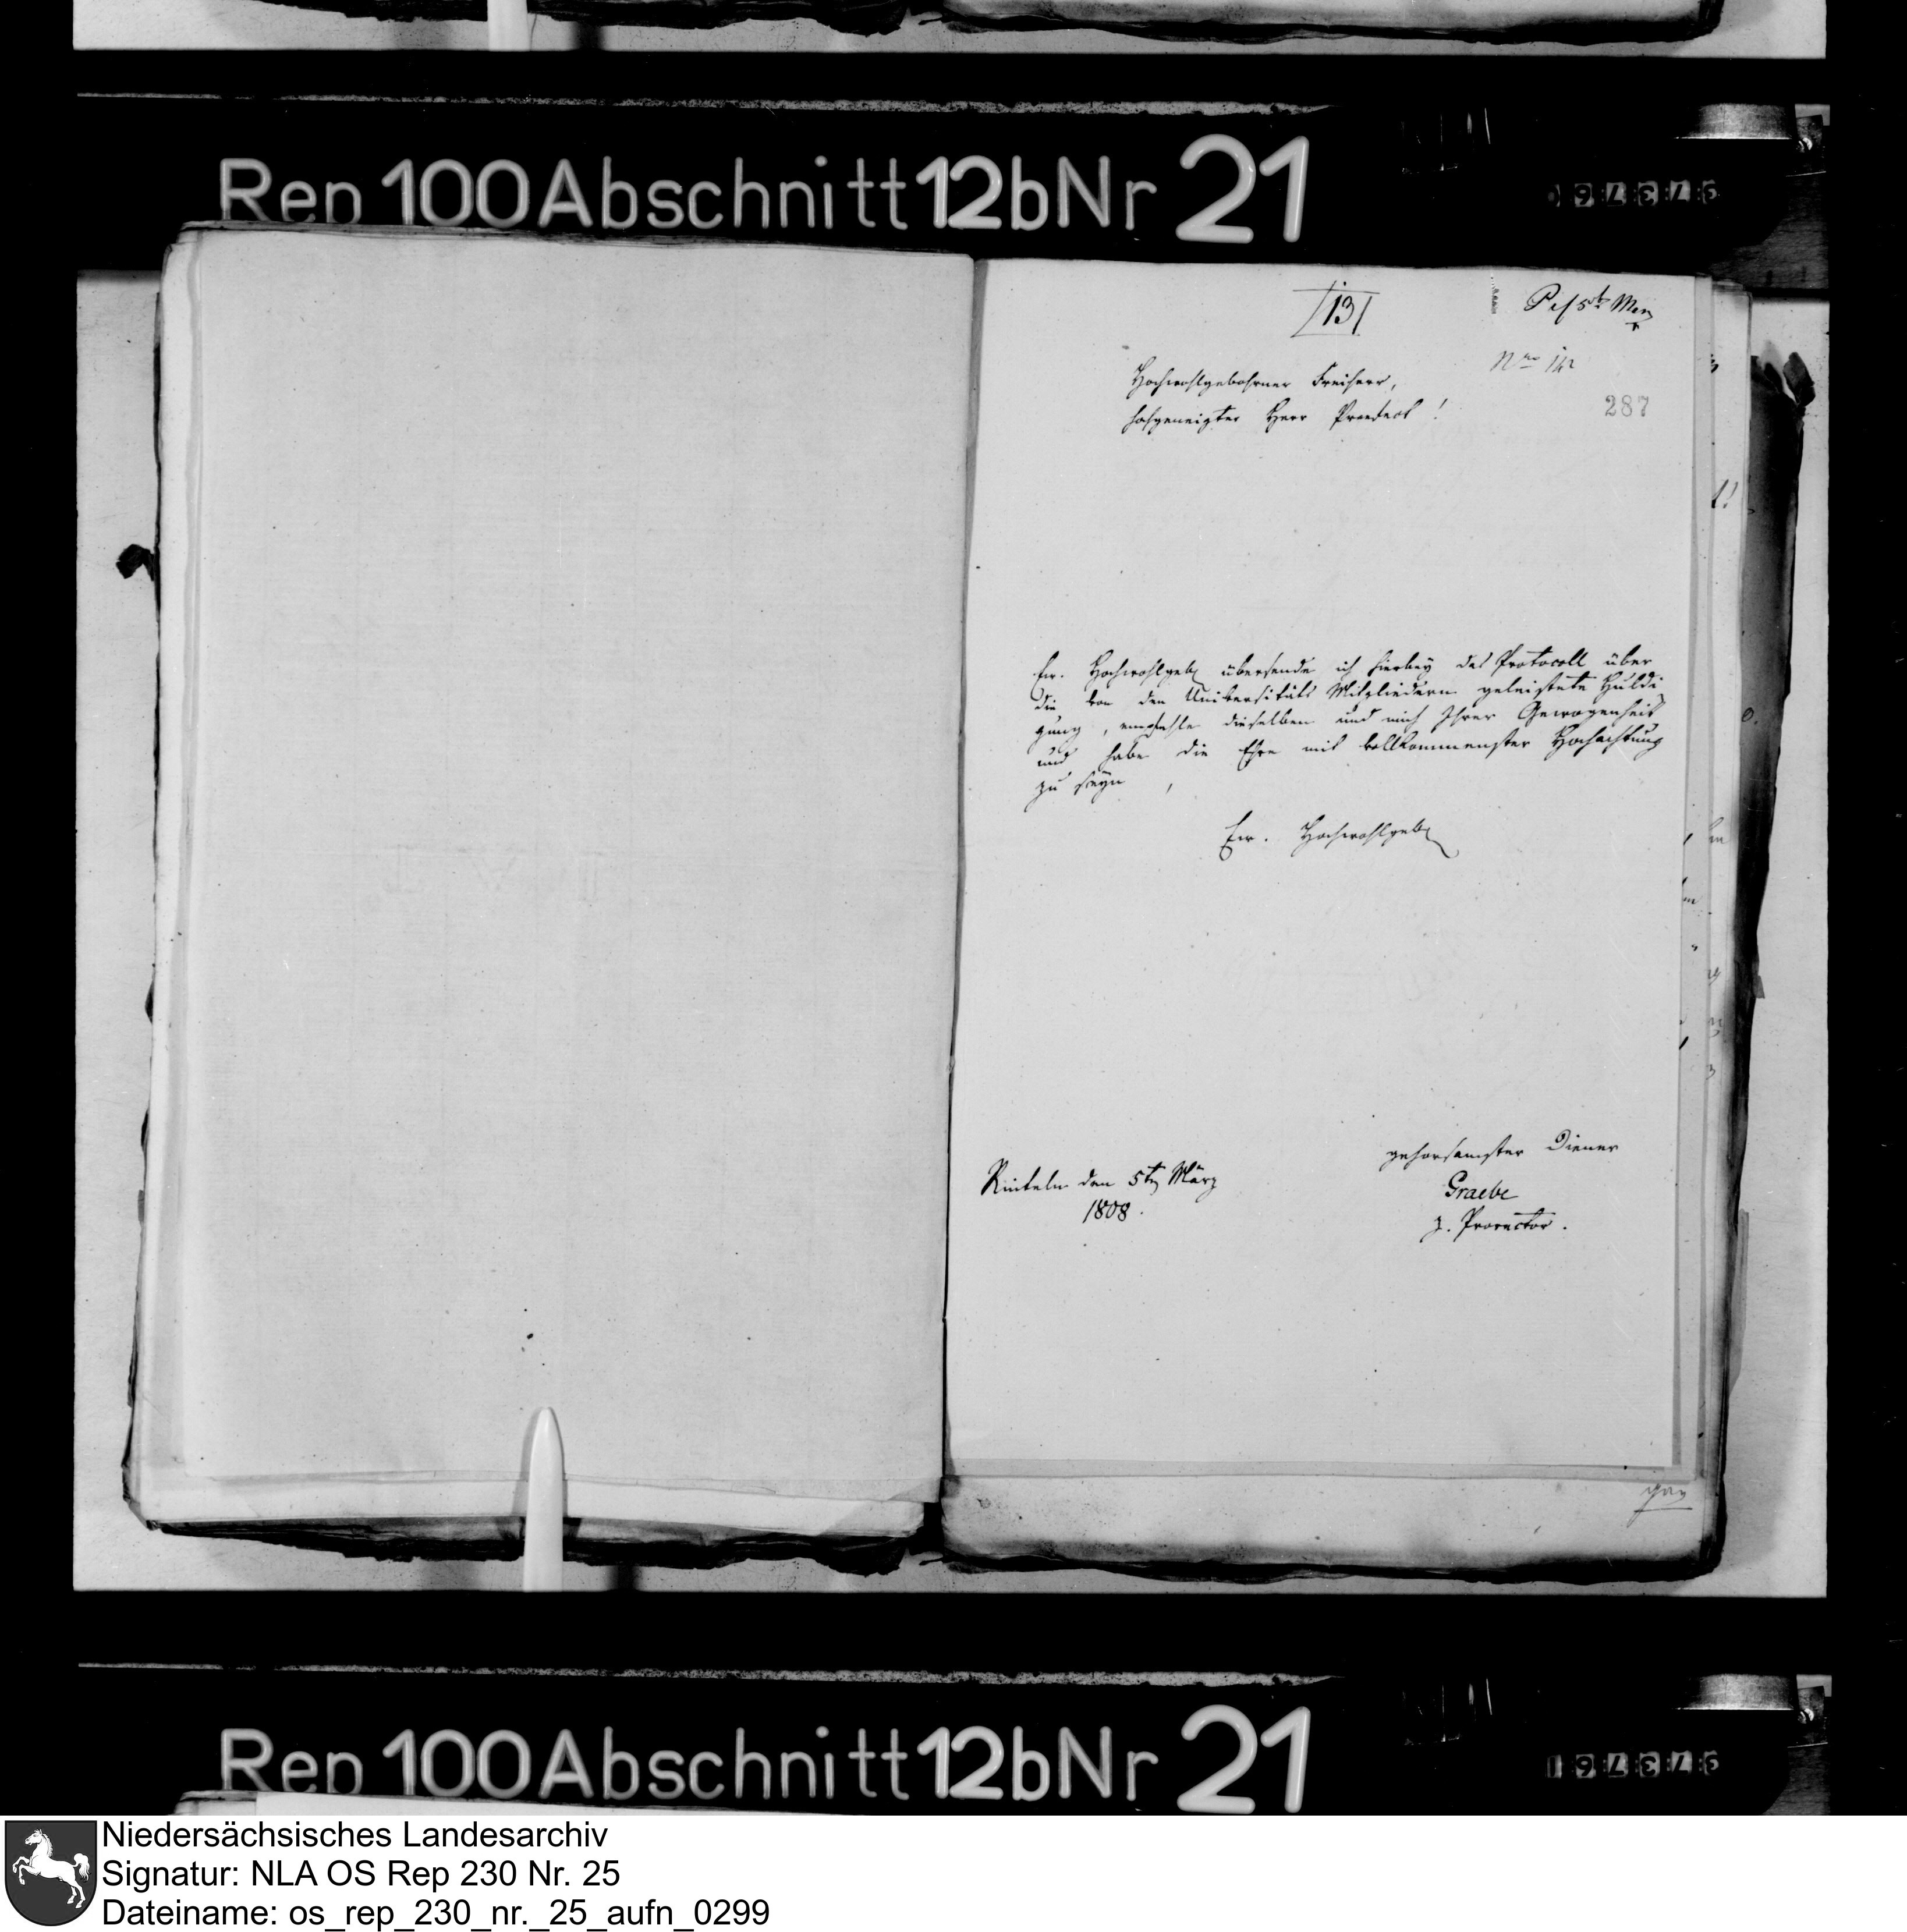 Rep 100 Abschnitt 12b Nr 21
13
287
Hochwohlgebohrner Freiherr,
hochgeneigter Herr Praefect!
Ew. Hochwohlgeb. übersende ich hierbey das Protocoll über
die von den Universitäts Mitgliedern geleistete Huldi-
gung, empfehle dieselben und mich Ihrer Gewogenheit
und habe die Ehre mit vollkommenster Hochachtung
zu seyn,
Ew. Hochwohlgeb.
gehorsamster Diener
Graebe
z. Prorector.
Rinteln den 5ten März
1808.
Rep 100 Abschnitt 12b Nr 21
Niedersächsisches Landesarchiv
Signatur: NLA OS Rep 230 Nr. 25
Dateiname: os_rep_230_nr._25_aufn_0299